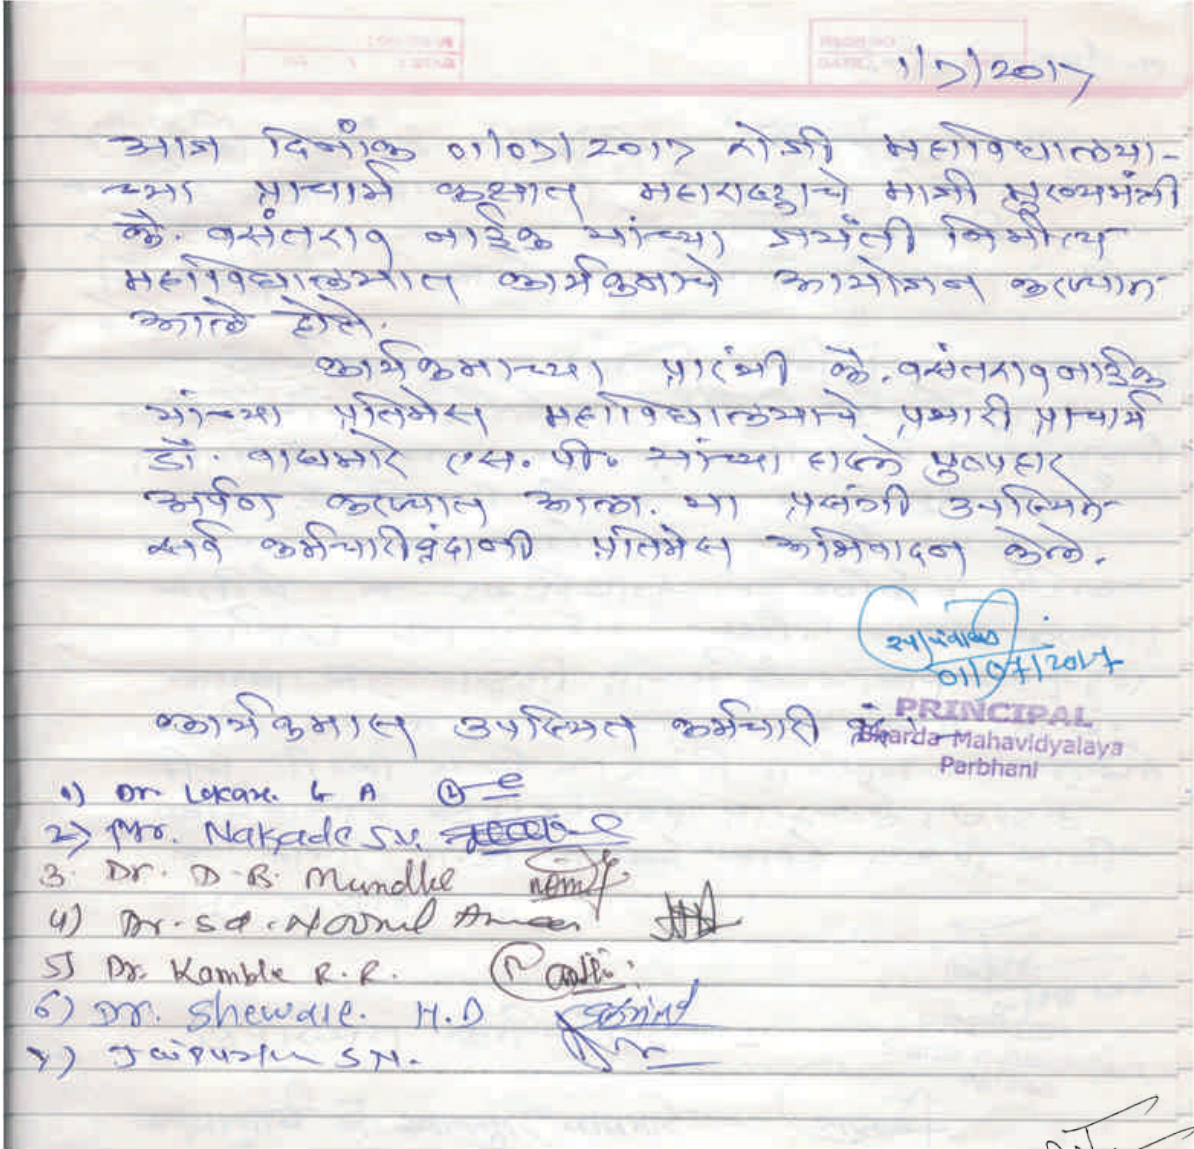 १/७/2017
आज दिनांक ०१/०७/2017 रोजी महाविद्यालया-
च्या प्राचार्य कक्षात महाराष्ट्राचे माजी मुख्यमंत्री
कै. वसंतराव नाईक यांच्या जयंती निमीत्य
महाविद्यालयात कार्यक्रमाचे आयोजन करण्यात
आले होते.
कार्यक्रमाच्या प्रारंभी कै. वसंतराव नाईक
यांच्या प्रतिमेस महाविद्यालयाचे प्रभारी प्राचार्य
डॉ. वाघमारे एस. पी. यांच्या हास्ते पुष्पहार
अर्पण करण्यात आला. या प्रसंगी उपस्थित
सर्व कर्मचारीवृंदानी प्रतिमेस अभिवादन केले.
01/07/2017
PRINCIPAL
कार्यक्रमास उपस्थित कर्मचारी
Sharda Mahavidyalaya
Parbhani
१) Dr. Lokare G A
2) Mr. Nakade S.V.
3. Dr. D. B. Mundhe
4) Dr. Sd.
5) Dr. Kamble R. R.
6) Dr. Shewale. H.D
७) S.N.